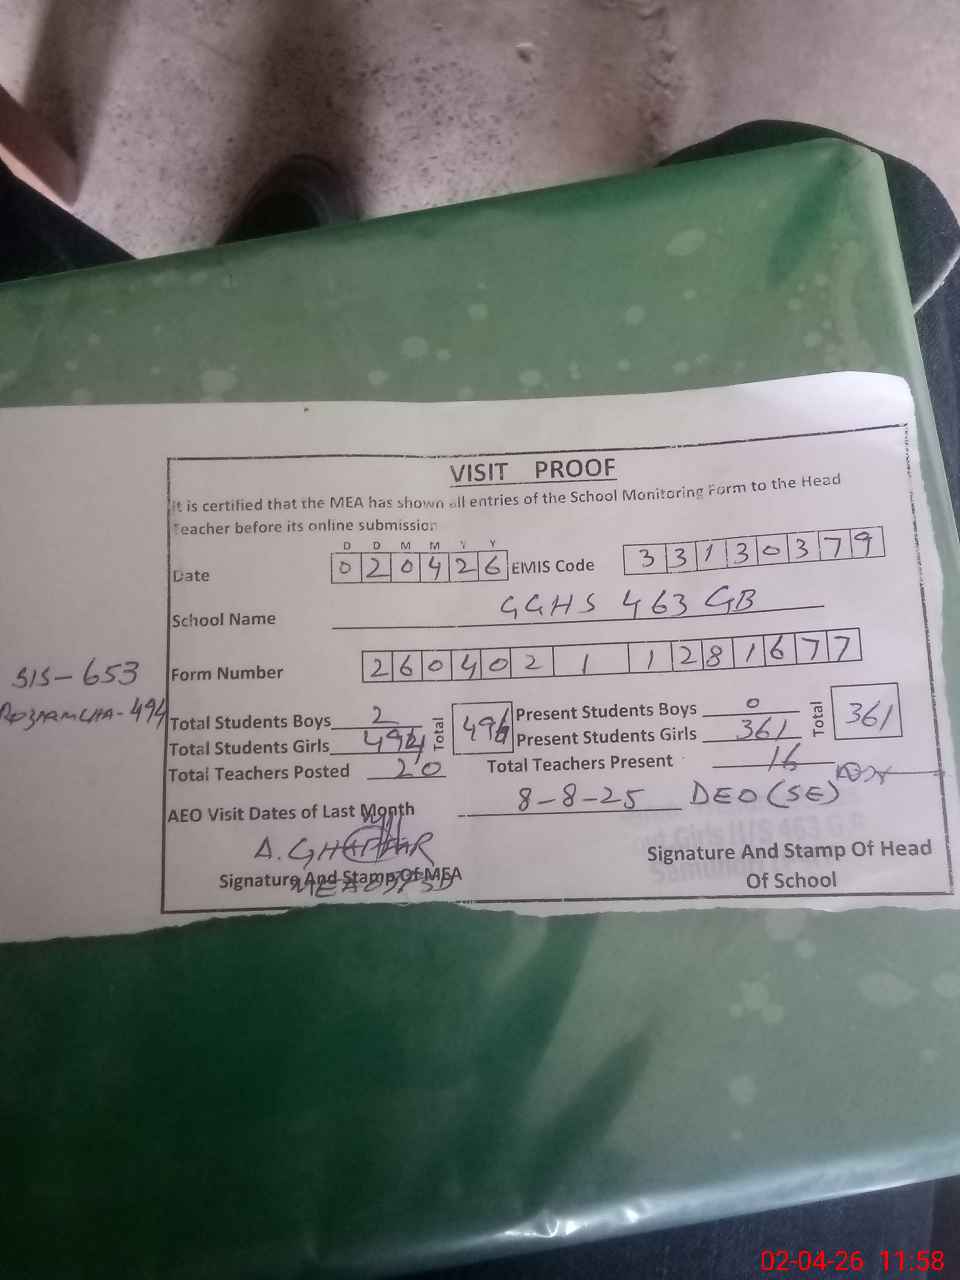 VISIT PROOF
It is certified that the MEA has shown all entries of the School Monitoring Form to the Head
Teacher before its online submission
D D M M Y Y
Date 020426 EMIS Code 33130379
School Name GGHS 463 GB
SIS-653
Form Number 26040211281677
ROZNAMCHA-494
Total Students Boys 2 Total 494 Present Students Boys 0 Total 361
Total Students Girls 494 Present Students Girls 361
Total Teachers Posted 20 Total Teachers Present 16
AEO Visit Dates of Last Month 8-8-25 DEO (SE)
A. GHAFFAR
Signature And Stamp Of MEA
Signature And Stamp Of Head
Of School
02-04-26 11:58